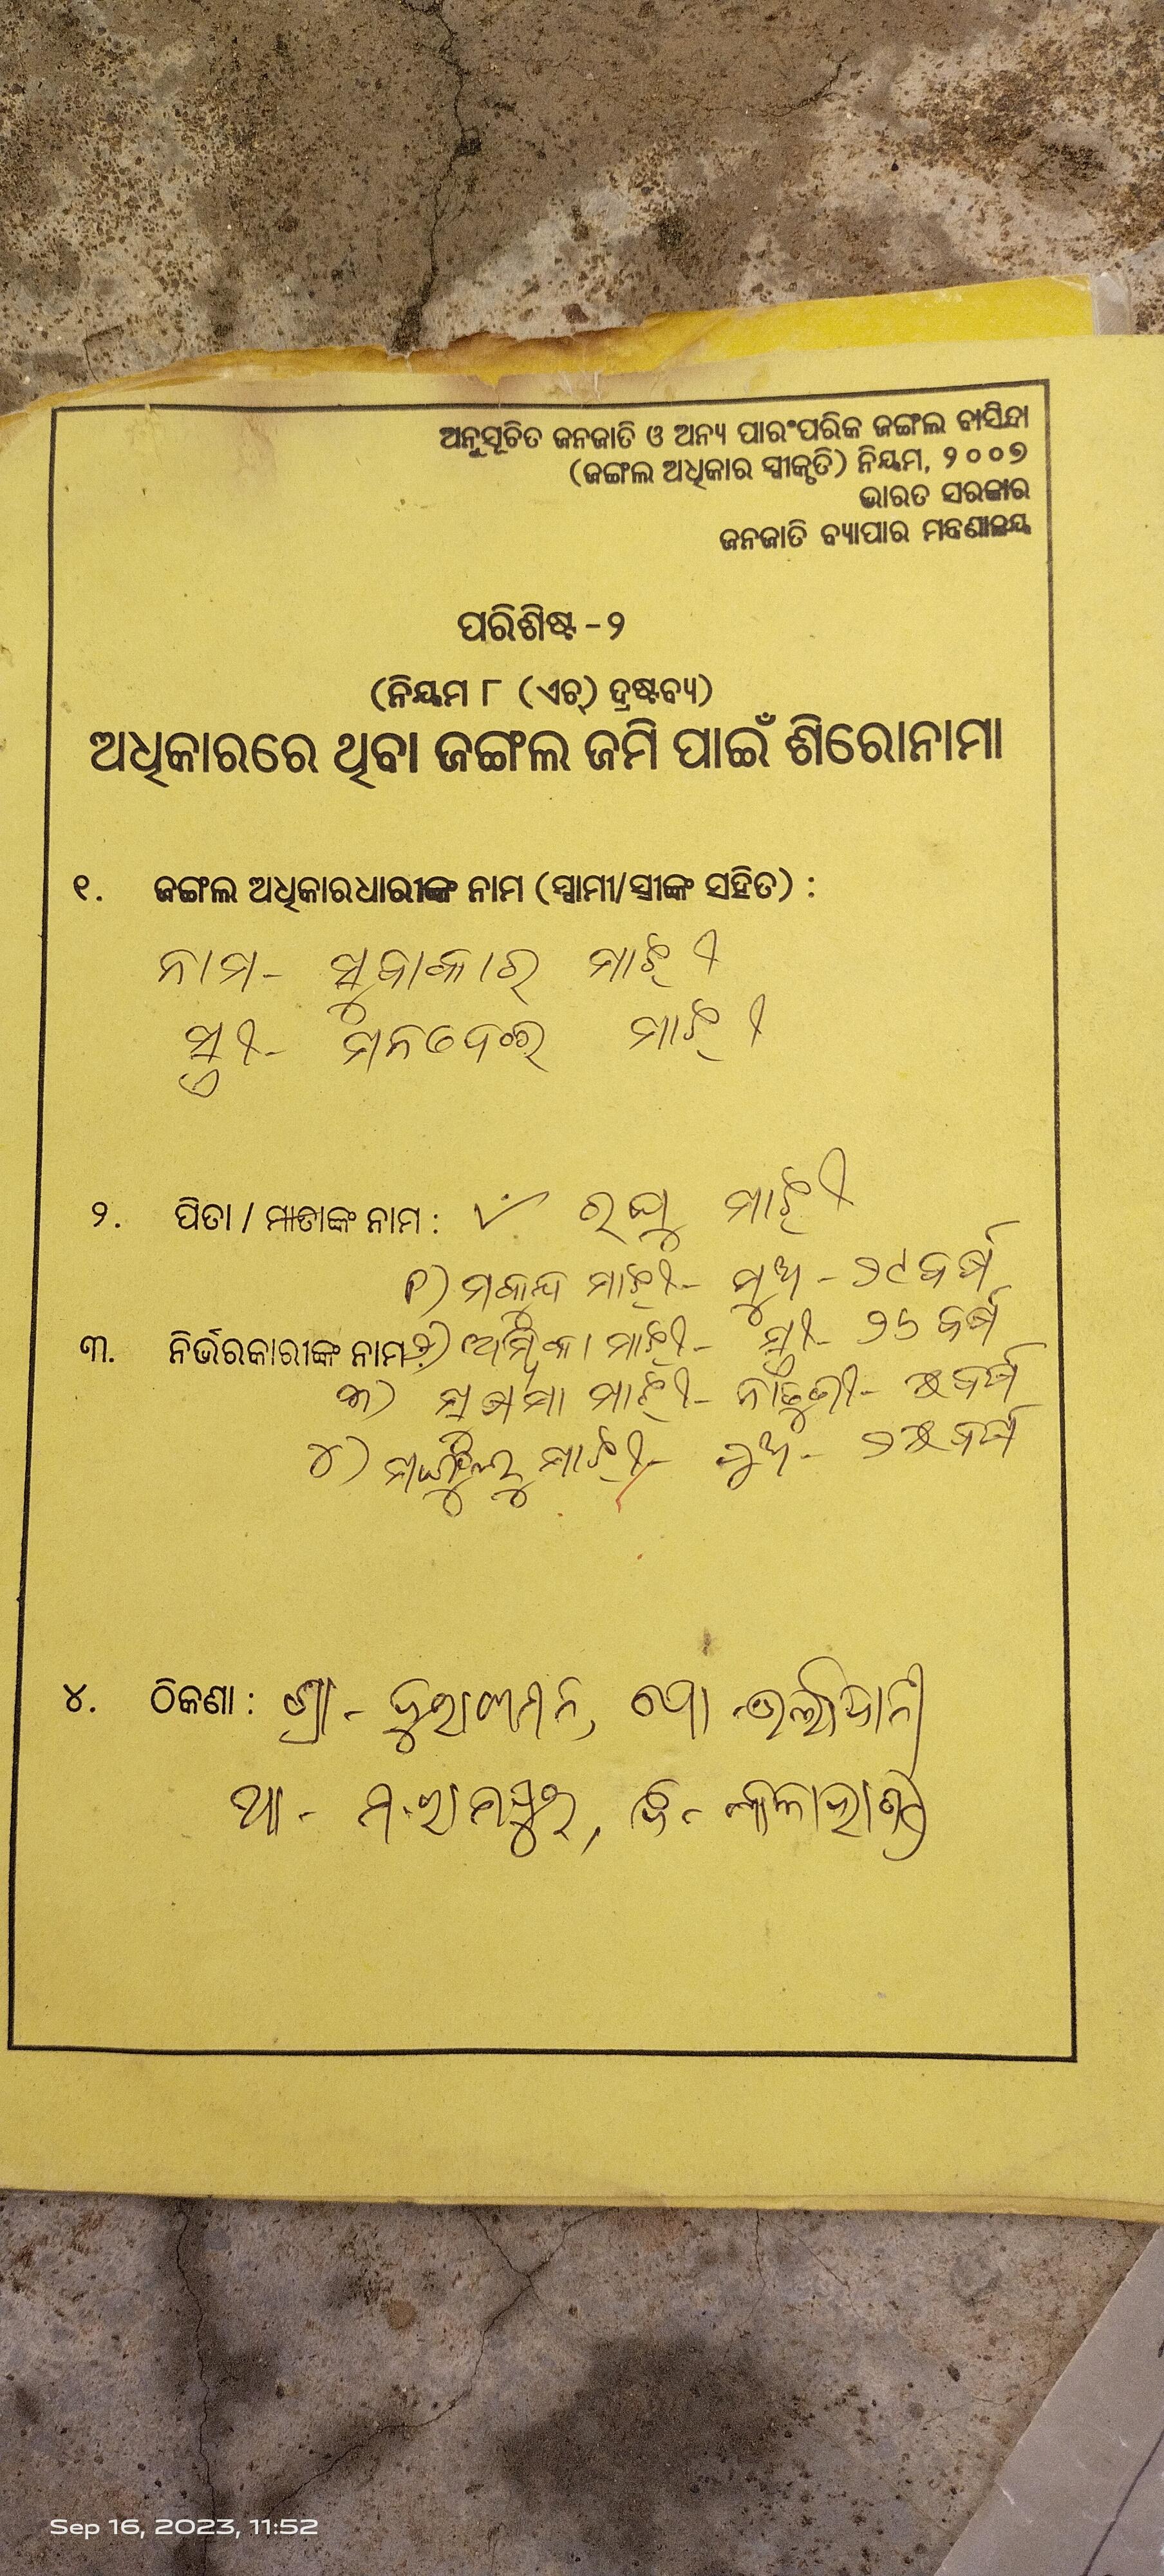 ଅନୁସୂଚିତ ଜନଜାତି ଓ ଅନ୍ୟ ପାରଂପରିକ ଜଙ୍ଗଲ ବାସିନ୍ଦା
(ଜଙ୍ଗଲ ଅଧିକାର ସ୍ୱୀକୃତି) ନିୟମ, ୨୦୦୭
ଭାରତ ସରକାର
ଜନଜାତି ବ୍ୟାପାର ମନ୍ତ୍ରଣାଳୟ
ପରିଶିଷ୍ଟ -୨
(ନିୟମ ୮ (ଏଚ୍) ଦ୍ରଷ୍ଟବ୍ୟ)
ଅଧିକାରରେ ଥିବା ଜଙ୍ଗଲ ଜମି ପାଇଁ ଶିରୋନାମା
୧. ଜଙ୍ଗଲ ଅଧିକାରଧାରୀଙ୍କ ନାମ (ସ୍ୱାମୀ/ସ୍ତ୍ରୀଙ୍କ ସହିତ) :
ନାମ- ସୁବାକାର ମାଝୀ
ସ୍ତ୍ରୀ- ମାଝୀ
୨. ପିତା / ମାତାଙ୍କ ନାମ : ରଘୁ ମାଝୀ
୧) ମକୁନ୍ଦ ମାଝୀ- ପୁଅ - ୨୯ ବର୍ଷ
୩. ନିର୍ଭରକାରୀଙ୍କ ନାମ : ୨) ମାଝୀ- ସ୍ତ୍ରୀ- ୨୬ ବର୍ଷ
୩) ସୁଷମା ମାଝୀ- ନାତୁଣୀ- ୫ ବର୍ଷ
୪) ମାଝୀ- ପୁଅ- ୨୫ ବର୍ଷ
୪. ଠିକଣା : ଗ୍ରା- ପୋ-
ଥା- ମ.ରାମପୁର, ଜି- କଳାହାଣ୍ଡି
Sep 16, 2023, 11:52